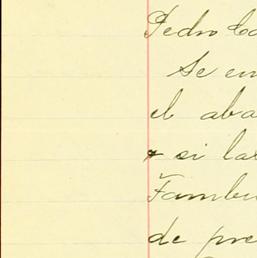 Pedro Ca
Se en
el aba
si las
Tambie
de pre